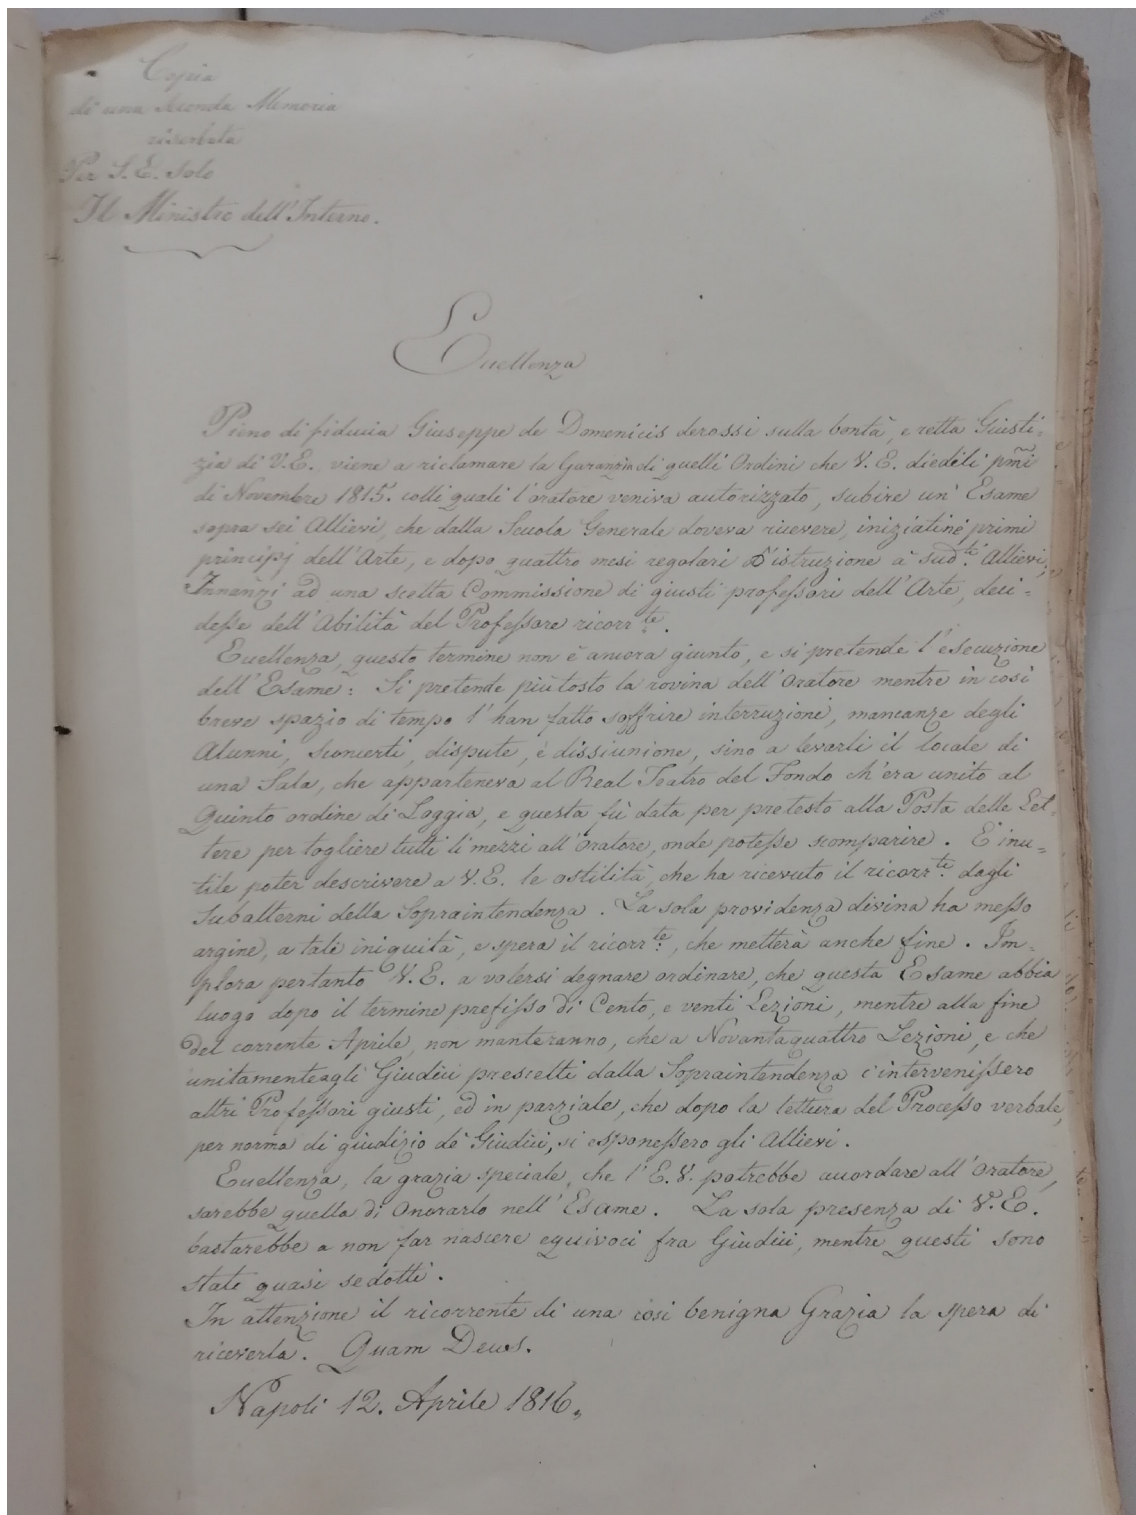 Copia
di una seconda Memoria
riserbata
Per S. E. solo
Il Ministro dell'Interno.
Eccellenza
Pieno di fiducia Giuseppe de Domenicis derossi sulla bontà, e retta Giusti-
zia di V.E. viene a riclamare la Garanzia di quelli Ordini che V. E. diedeli pmi
di Novembre 1815. colli quali l'oratore veniva autorizzato, subire un' Esame
sopra sei Allievi, che dalla Scuola Generale doveva ricevere, iniziatine' primi
principj dell'Arte, e dopo quattro mesi regolari d'istruzione à sud.ti Allievi,
Innanzi ad una scelta Commissione di giusti professori dell'Arte, deci-
desse dell'Abilità del Professore ricorr.te.
Eccellenza, questo termine non è ancora giunto, e si pretende l'esecuzione
dell'Esame: Si pretende più tosto la rovina dell'Oratore mentre in così
breve spazio di tempo l'han fatto soffrire interruzioni, mancanze degli
Alunni, sconcerti, dispute, è dissiunione, sino a levarli il locale di
una Sala, che apparteneva al Real Teatro del Fondo ch'era unito al
Quinto ordine di Loggia, e questa fù data per pretesto alla Posta delle Let-
tere per togliere tutti li mezzi all'Oratore, onde potesse scomparire. E' inu-
tile poter descrivere a V.E. le ostilità, che ha ricevuto il ricorr.te dagli
Subalterni della Sopraintendenza. La sola providenza divina ha messo
argine, a tale iniquità, e spera il ricorr.te, che metterà anche fine. Im-
plora pertanto V.E. a volersi degnare ordinare, che questa Esame abbia
luogo dopo il termine prefisso di Cento, e venti Lezioni, mentre alla fine
Del corrente Aprile, non manteranno, che a Novantaquattro Lezioni, e che
unitamente agli Giudici prescelti dalla Sopraintendenza c'intervenissero
altri Professori giusti, ed in parziale, che dopo la lettura del Processo verbale,
per norma di giudizio de' Giudici, si esponessero gli Allievi.
Eccellenza, la grazia speciale, che l'E.V. potrebbe accordare all'Oratore,
sarebbe quella di Onorarlo nell'Esame. La sola presenza di V.E.
bastarebbe a non far nascere equivoci fra Giudici, mentre questi sono
stati quasi sedotti.
In attenzione il ricorrente di una così benigna Grazia la spera di
riceverla. Quam Deus.
Napoli 12. Aprile 1816.